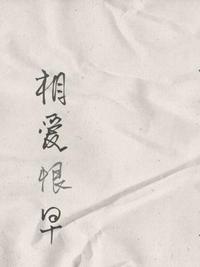 相爱恨早